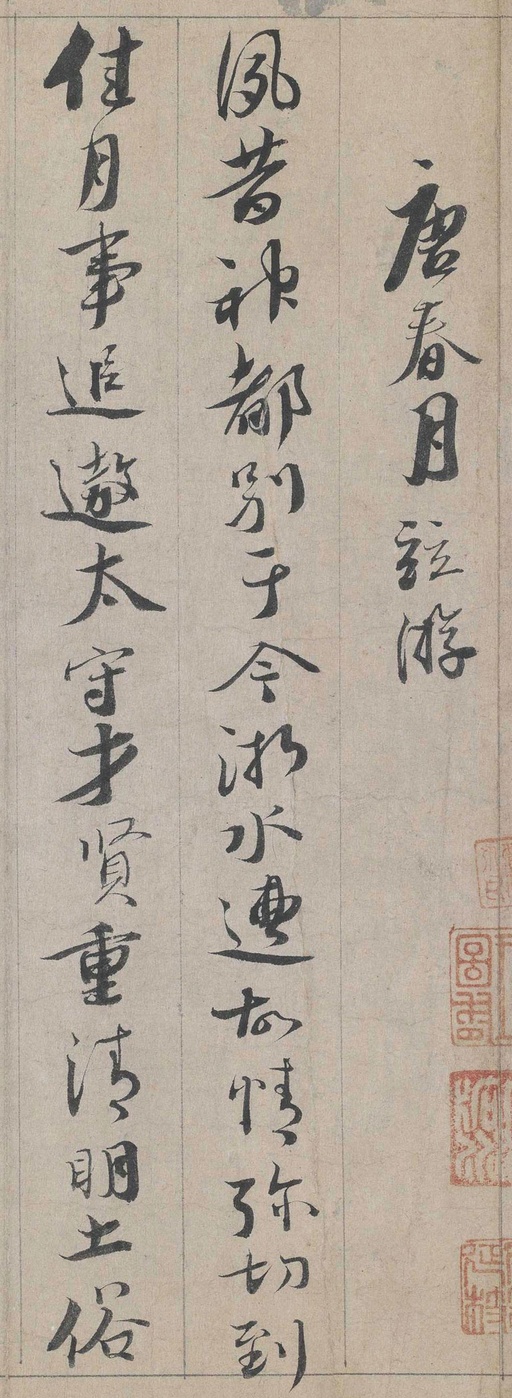 唐春月竝游
夙昔神都别于今浙水遭故情弥切到
佳月事追遨太守才贤重清明土俗